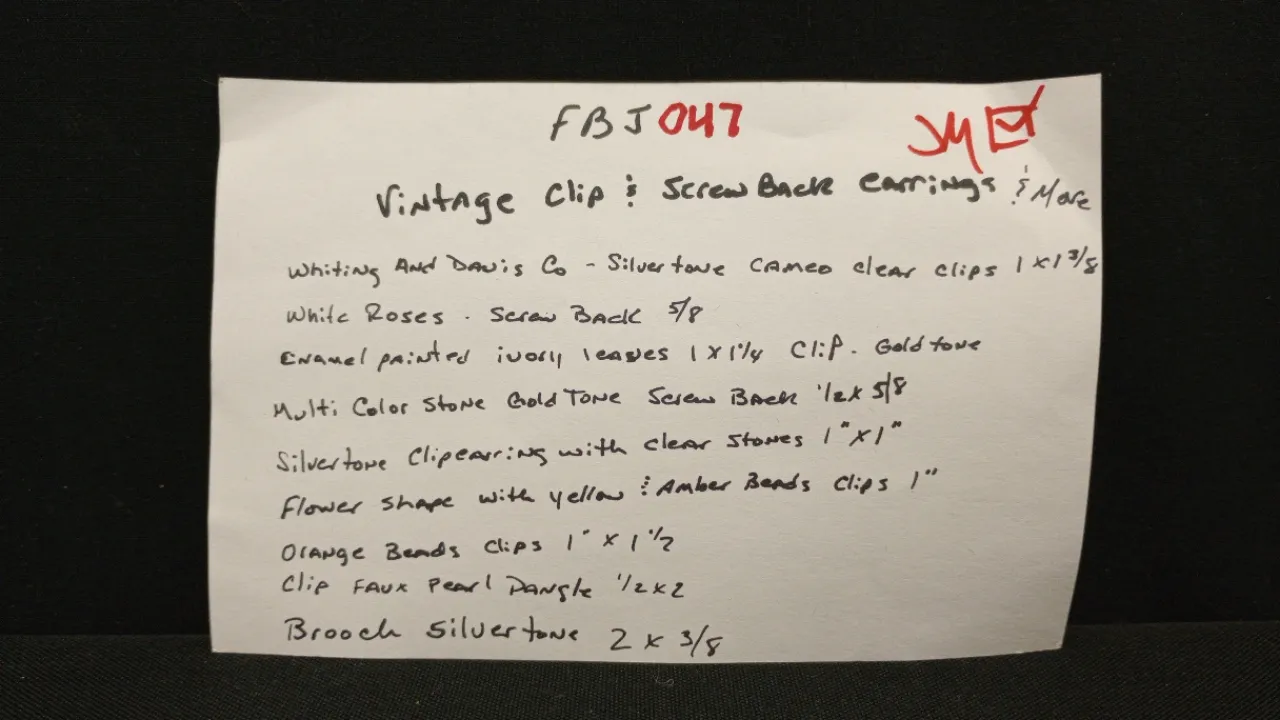 FBJ047 JM
Vintage Clip & Screw Back Earrings & More
Whiting And Davis Co - Silvertone Cameo clear clips 1 x 1 3/8
White Roses - Screw Back 5/8
Enamel painted ivory leaves 1 x 1 1/4 Clip - Goldtone
Multi Color Stone Gold Tone Screw Back 1/2 x 5/8
Silvertone Clip earring with clear stones 1" x 1"
Flower shape with yellow & Amber Beads Clips 1"
Orange Beads Clips 1" x 1 1/2
Clip Faux Pearl Dangle 1/2 x 2
Brooch Silvertone 2 x 3/8